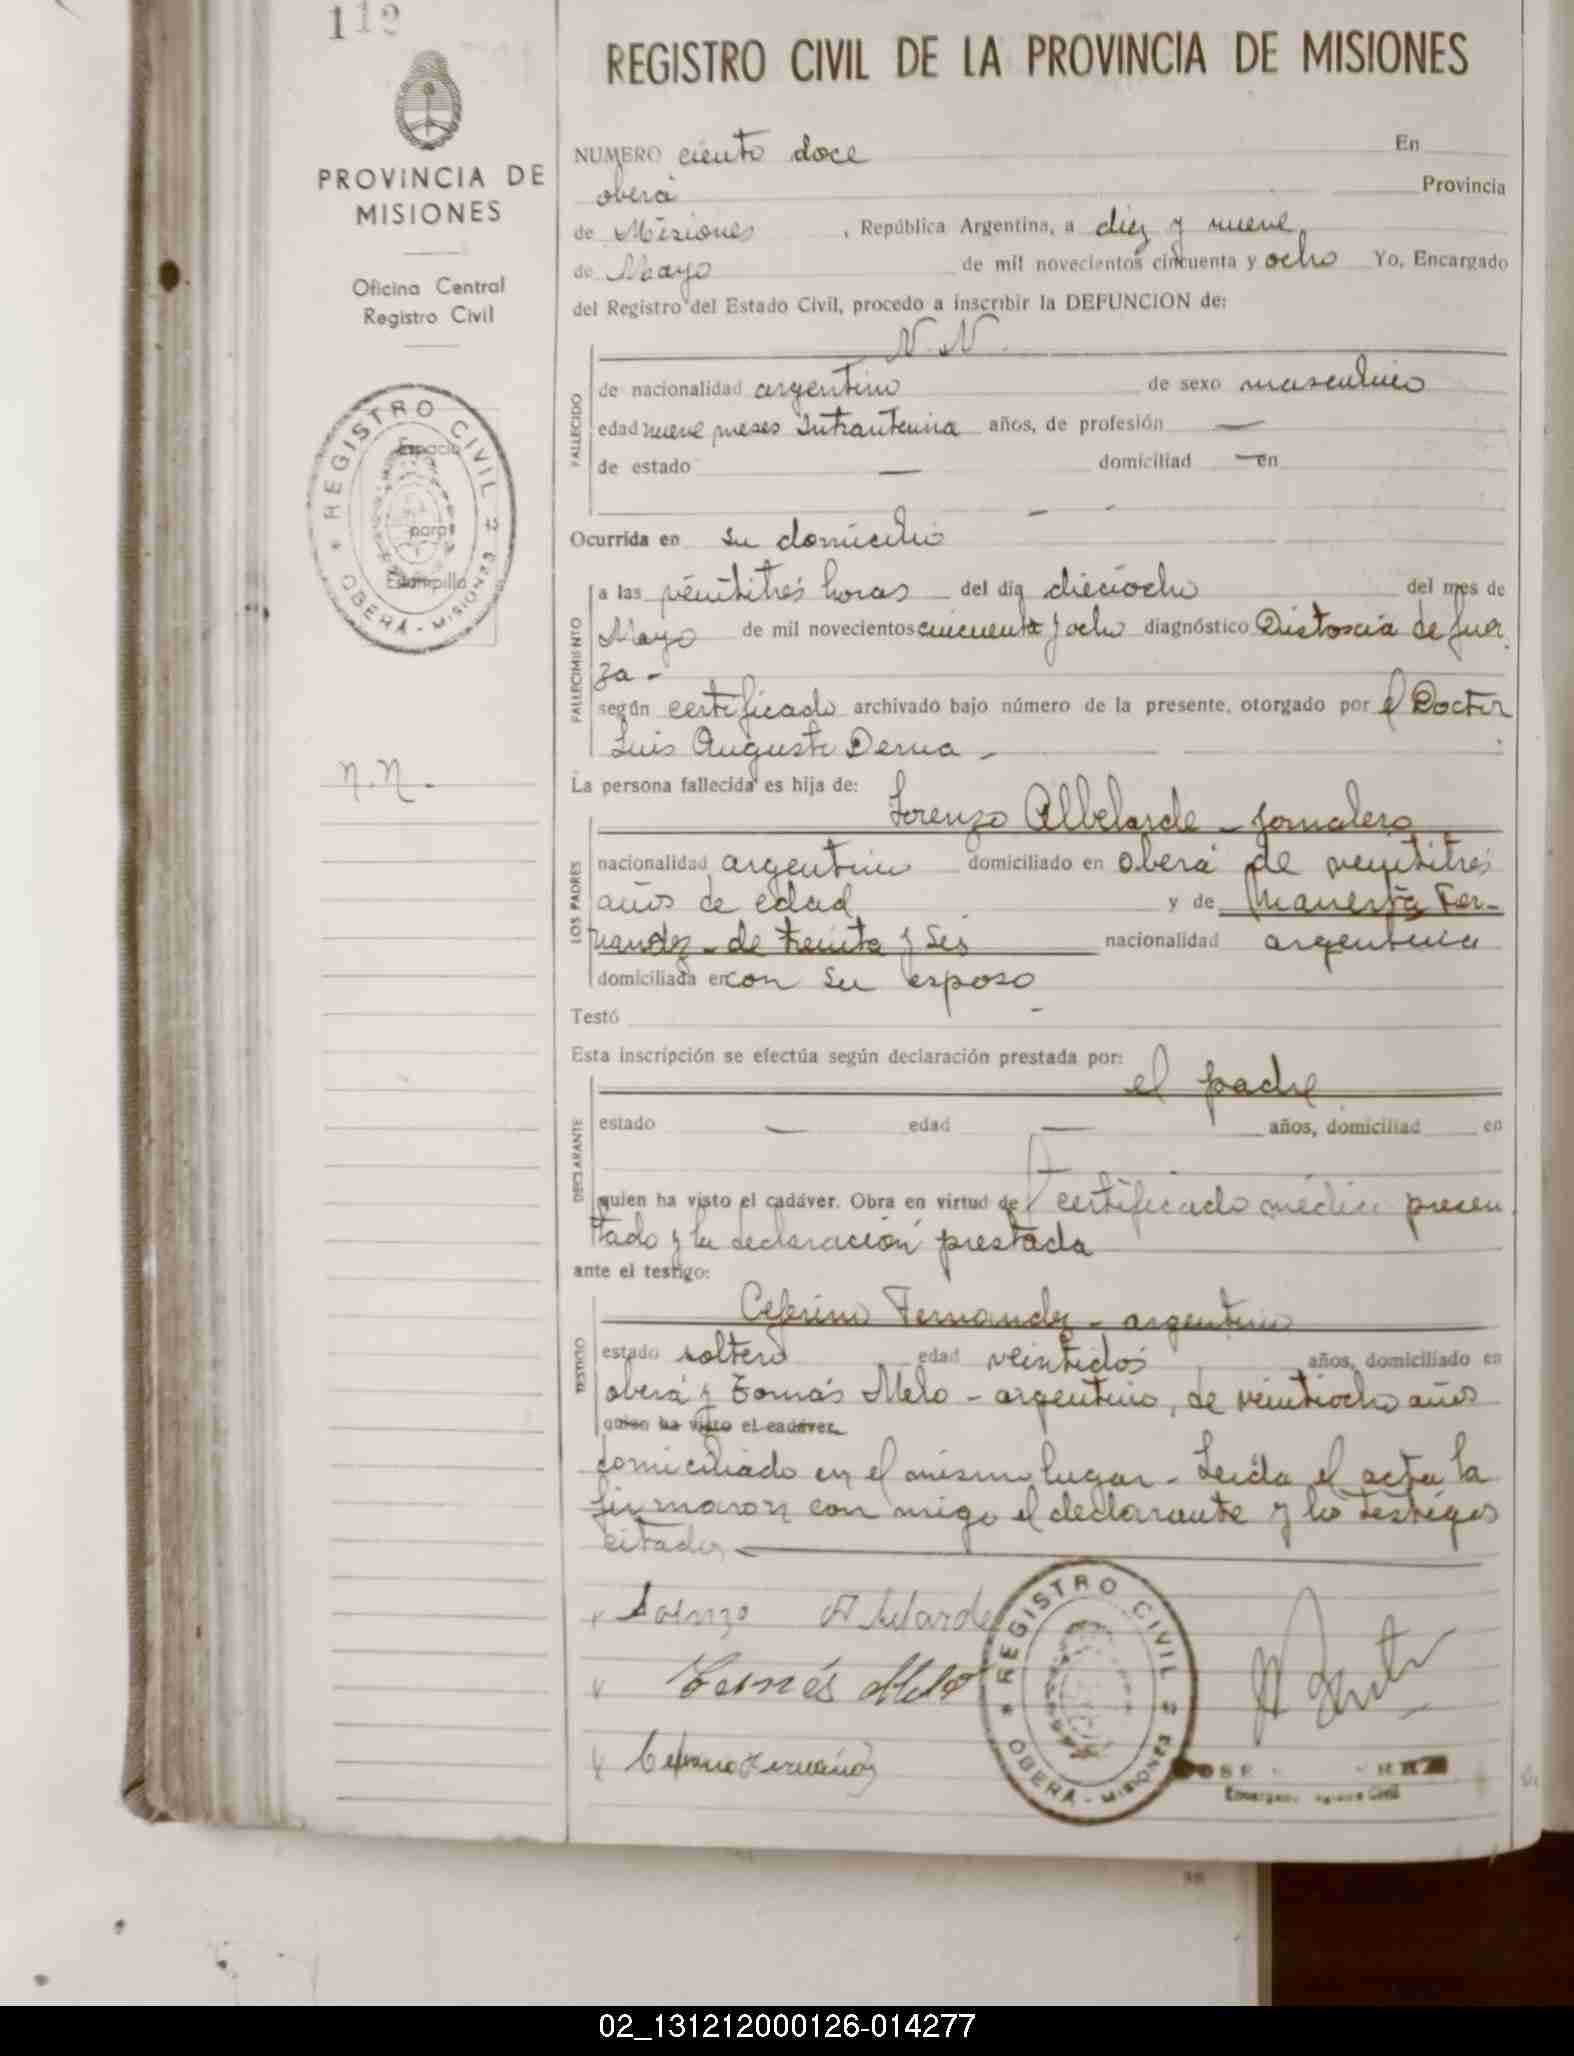 112
REGISTRO CIVIL DE LA PROVINCIA DE MISIONES
PROVINCIA DE
MISIONES
Oficina Central
Registro Civil
REGISTRO CIVIL
OBERÁ - MISIONES
Espacio
para
Estampilla
n.n.
NUMERO ciento doce En
oberá Provincia
de Misiones , República Argentina, a diez y nueve
de Mayo de mil novecientos cincuenta y ocho Yo, Encargado
del Registro del Estado Civil, procedo a inscribir la DEFUNCION de:
N.N.
FALLECIDO
de nacionalidad argentino de sexo masculino
edad nueve meses intrauterina años, de profesión —
de estado — domiciliad — en
Ocurrida en su domicilio
FALLECIMIENTO
a las veintitrés horas del día dieciocho del mes de
Mayo de mil novecientos cincuenta y ocho diagnóstico Distoscia de fuer
za -
según certificado archivado bajo número de la presente, otorgado por el Doctor
Luis Augusto Derna -
La persona fallecida es hija de:
LOS PADRES
Lorenzo Albelarde - Jornalero
nacionalidad argentino domiciliado en oberá de veintitrés
años de edad y de Fer-
nandez - de treinta y seis nacionalidad argentina
domiciliada en con su esposo
Testó
Esta inscripción se efectúa según declaración prestada por:
el padre
DECLARANTE
estado — edad — años, domiciliad en
quien ha visto el cadáver. Obra en virtud de certificado médico presen
tado y la declaración prestada
ante el testigo:
Ceferino Fernandez - argentino
TESTIGO
estado soltero edad veintidós años, domiciliado en
oberá y Tomás Melo - argentino, de veintiocho años
quien ha visto el cadáver
domiciliado en el mismo lugar - Leída el acta la
firmaron con migo el declarante y los testigos
citados
Lorenzo Albelarde
Tomás Melo
Ceferino Fernández
REGISTRO CIVIL
OBERÁ - MISIONES
JOSE
Encargado Registro Civil
02_131212000126-014277